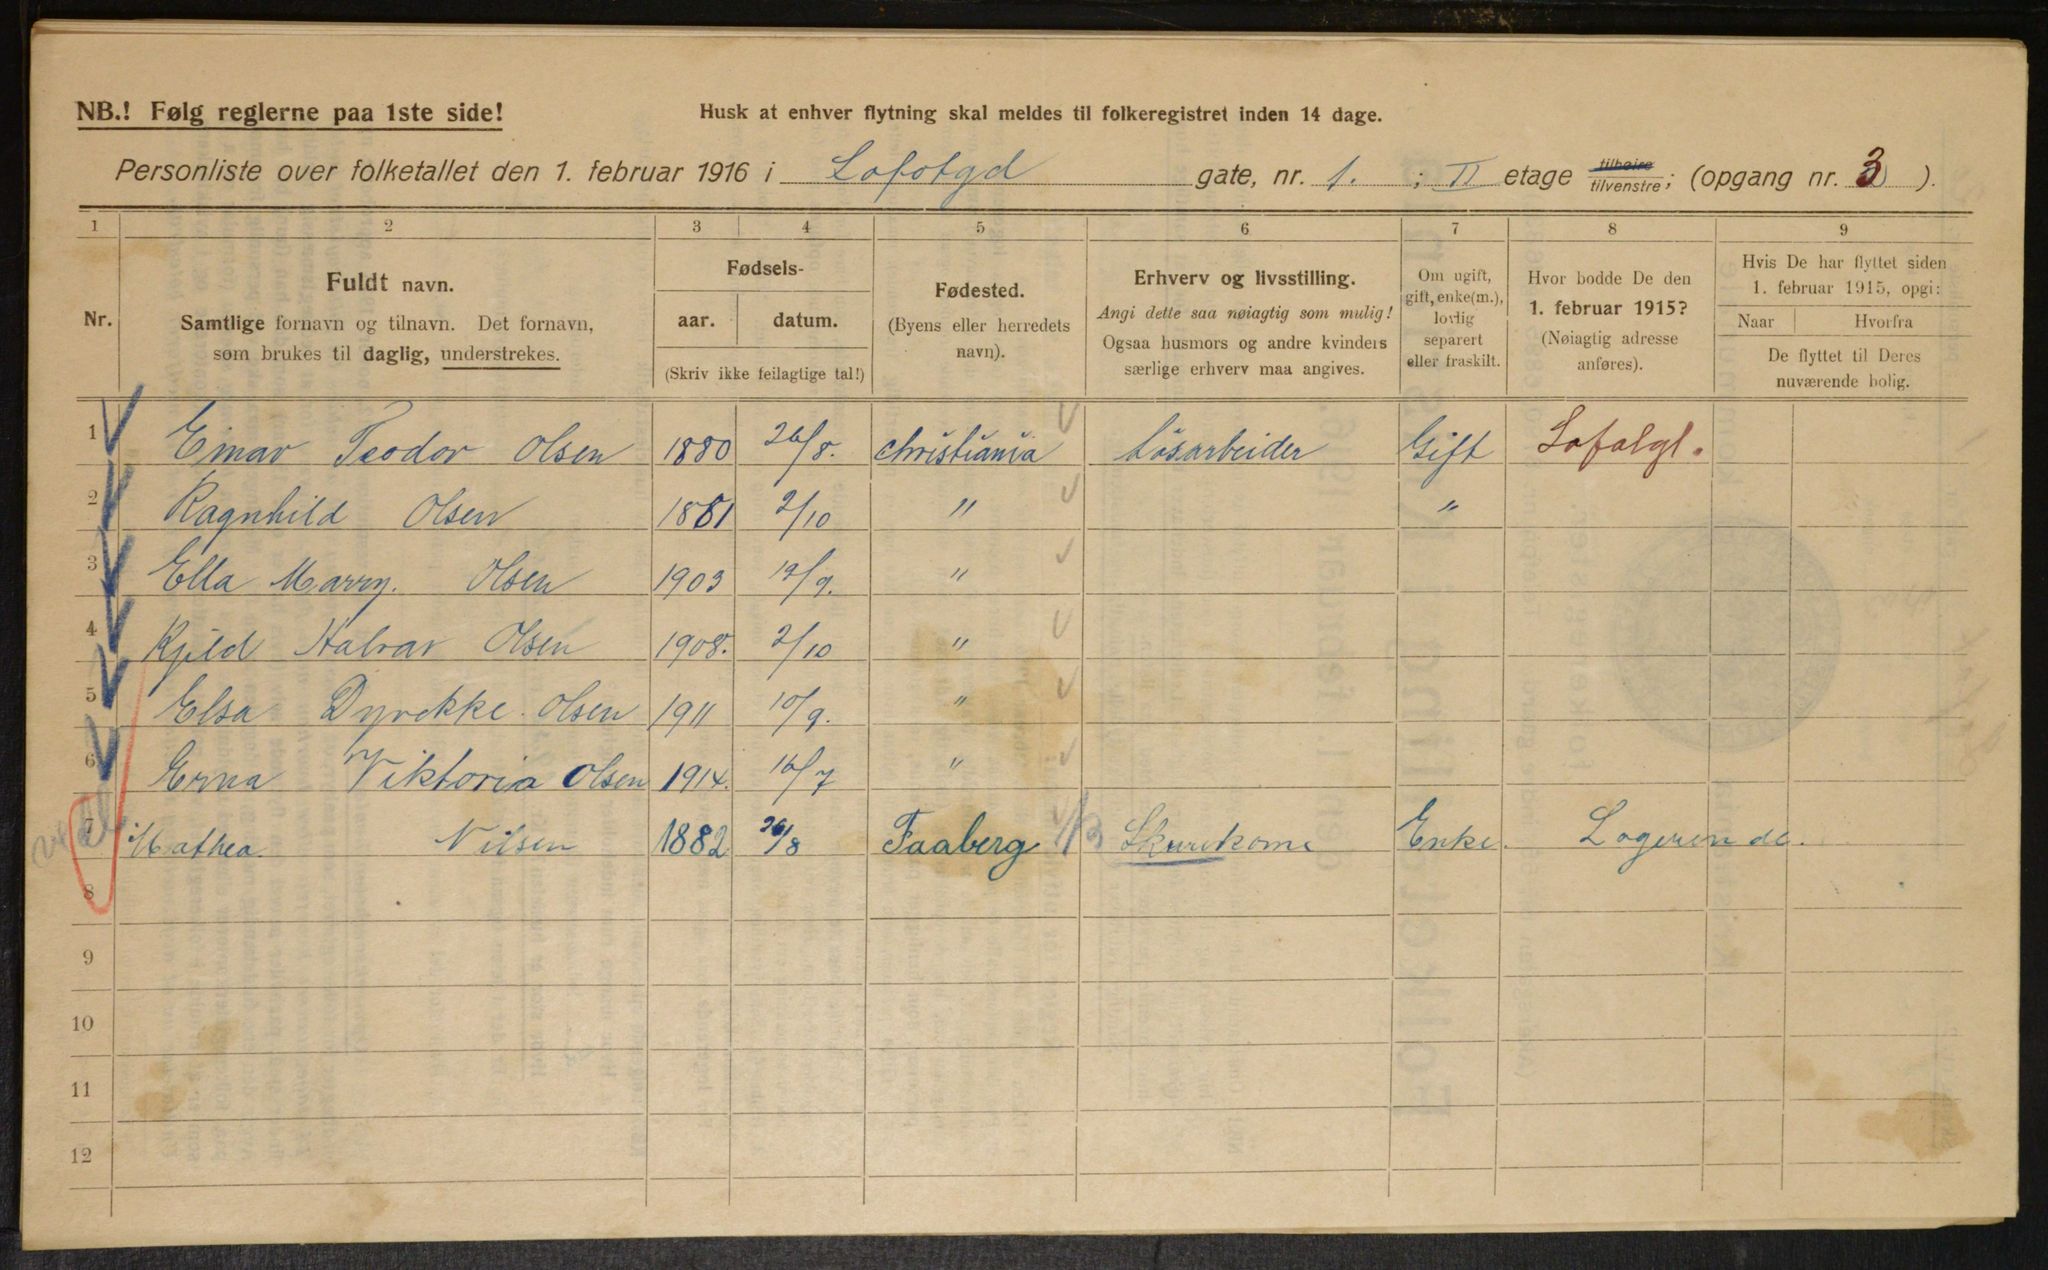 NB.! Følg reglerne paa 1ste side!
Husk at enhver flytning skal meldes til folkeregistret inden 14 dage.
Personliste over folketallet den 1. februar 1916 i Lofotgd gate, nr. 1. ; II etage tilhøire tilvenstre; (opgang nr. 3 ).
1 2 3 4 5 6 7 8 9
Nr.
Fuldt navn.
Samtlige fornavn og tilnavn. Det fornavn,
som brukes til daglig, understrekes.
Fødsels-
aar. datum.
(Skriv ikke feilagtige tal!)
Fødested.
(Byens eller herredets
navn).
Erhverv og livsstilling.
Angi dette saa nøiagtig som mulig!
Ogsaa husmors og andre kvinders
særlige erhverv maa angives.
Om ugift,
gift, enke(m.),
lovlig
separert
eller fraskilt.
Hvor bodde De den
1. februar 1915?
(Nøiagtig adresse
anføres).
Hvis De har flyttet siden
1. februar 1915, opgi:
Naar Hvorfra
De flyttet til Deres
nuværende bolig.
1 Einar Teodor Olsen 1880 26/8. Christiania Løsarbeider Gift Lofotgt.
2 Ragnhild Olsen 1881 2/10 " "
3 Ella Marry. Olsen 1903 12/9. "
4 Kjeld Halvar Olsen 1908. 2/10 "
5 Elsa Dyvekke. Olsen 1911 10/9. "
6 Erna Viktoria Olsen 1914. 16/7 "
7 Mathea. Nilsen 1882 26/8 Faaberg Skurekone Enke. Logerende.
8
9
10
11
12